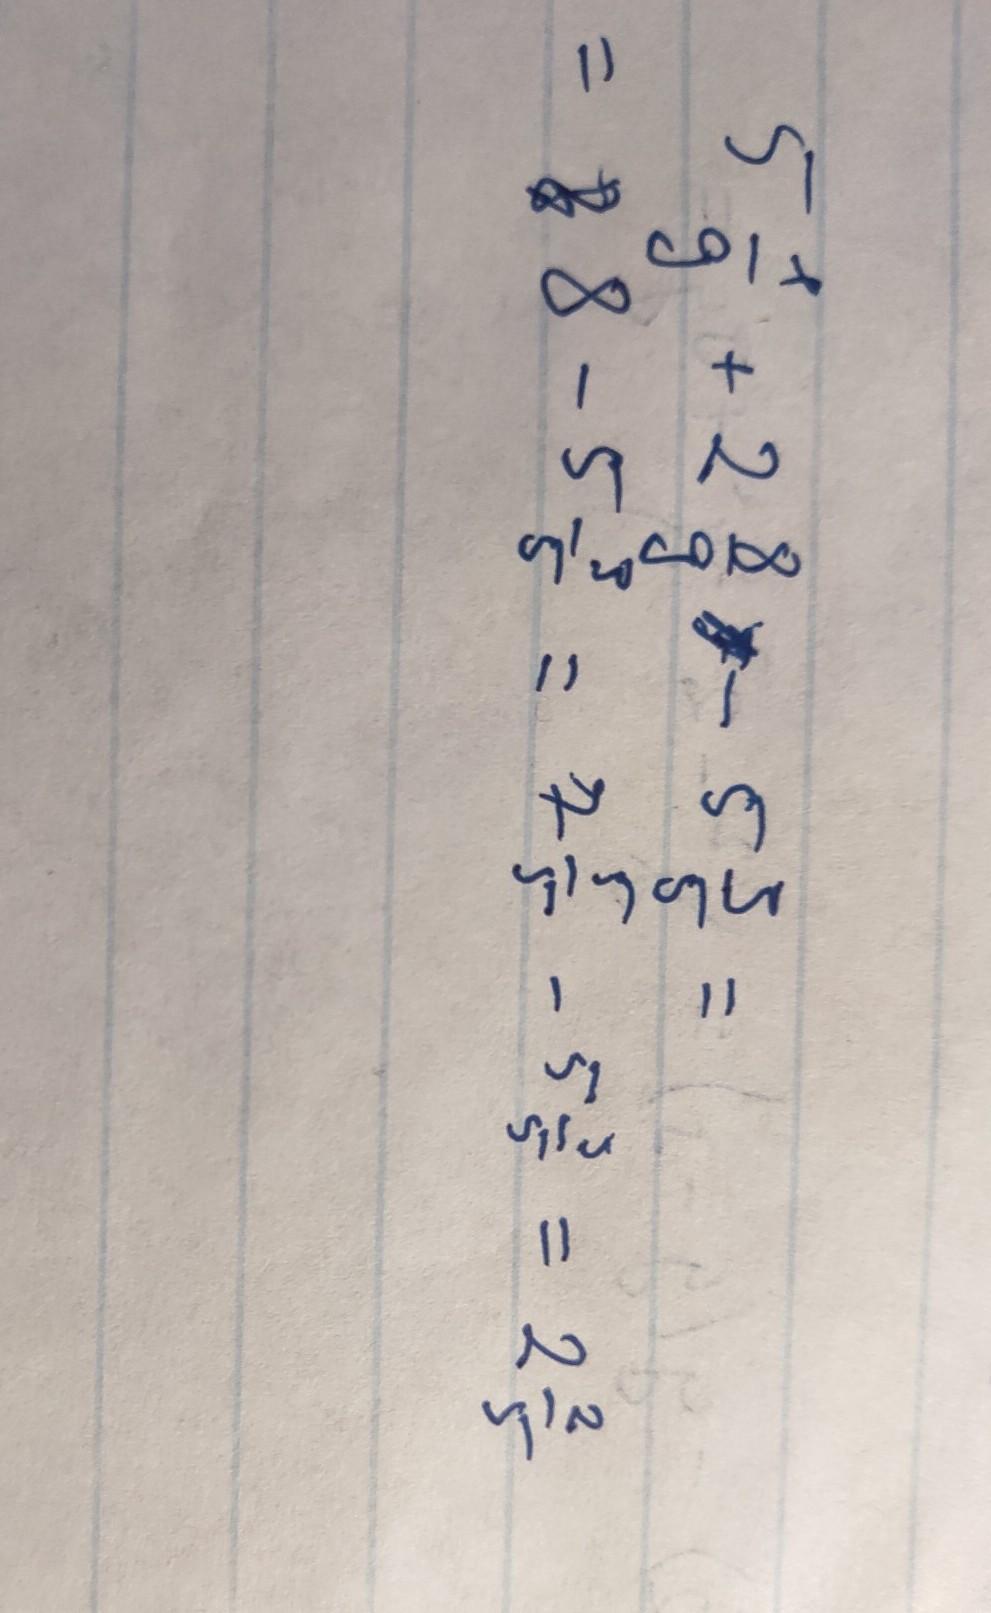 5 1/9 + 2 8/9 - 5 3/5 =
= 8 - 5 3/5 = 7 5/5 - 5 3/5 = 2 2/5